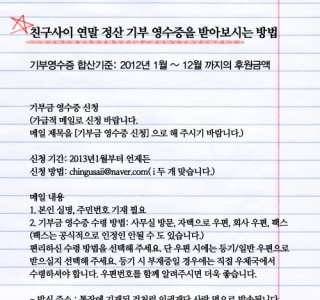 친구사이 연말 정산 기부 영수증을 받아보시는 방법
기부영수증 합산기준: 2012년 1월 ~ 12월 까지의 후원금액
기부금 영수증 신청
(가급적 메일로 신청 바랍니다.
메일 제목을 [기부금 영수증 신청] 으로 해 주시기 바랍니다.)
신청 기간: 2013년1월부터 언제든
신청 방법: chingusaii@naver.com( i 두 개 맞습니다.)
메일 내용
1. 본인 실명, 주민번호 기재 필요
2. 기부금 영수증 수령 방법: 사무실 방문, 자택으로 우편, 회사 우편, 팩스
(팩스는 공식적으로 인정인 안될 수 도 있습니다.)
편리하신 수령 방법을 선택해 주세요. 단 우편 시에는 등기/일반 우편으로
받으실지 선택해 주세요. 등기 시 부재중일 경우에는 직접 우체국에서
수령하셔야 합니다. 우편번호를 함께 알려주시면 더욱 좋습니다.